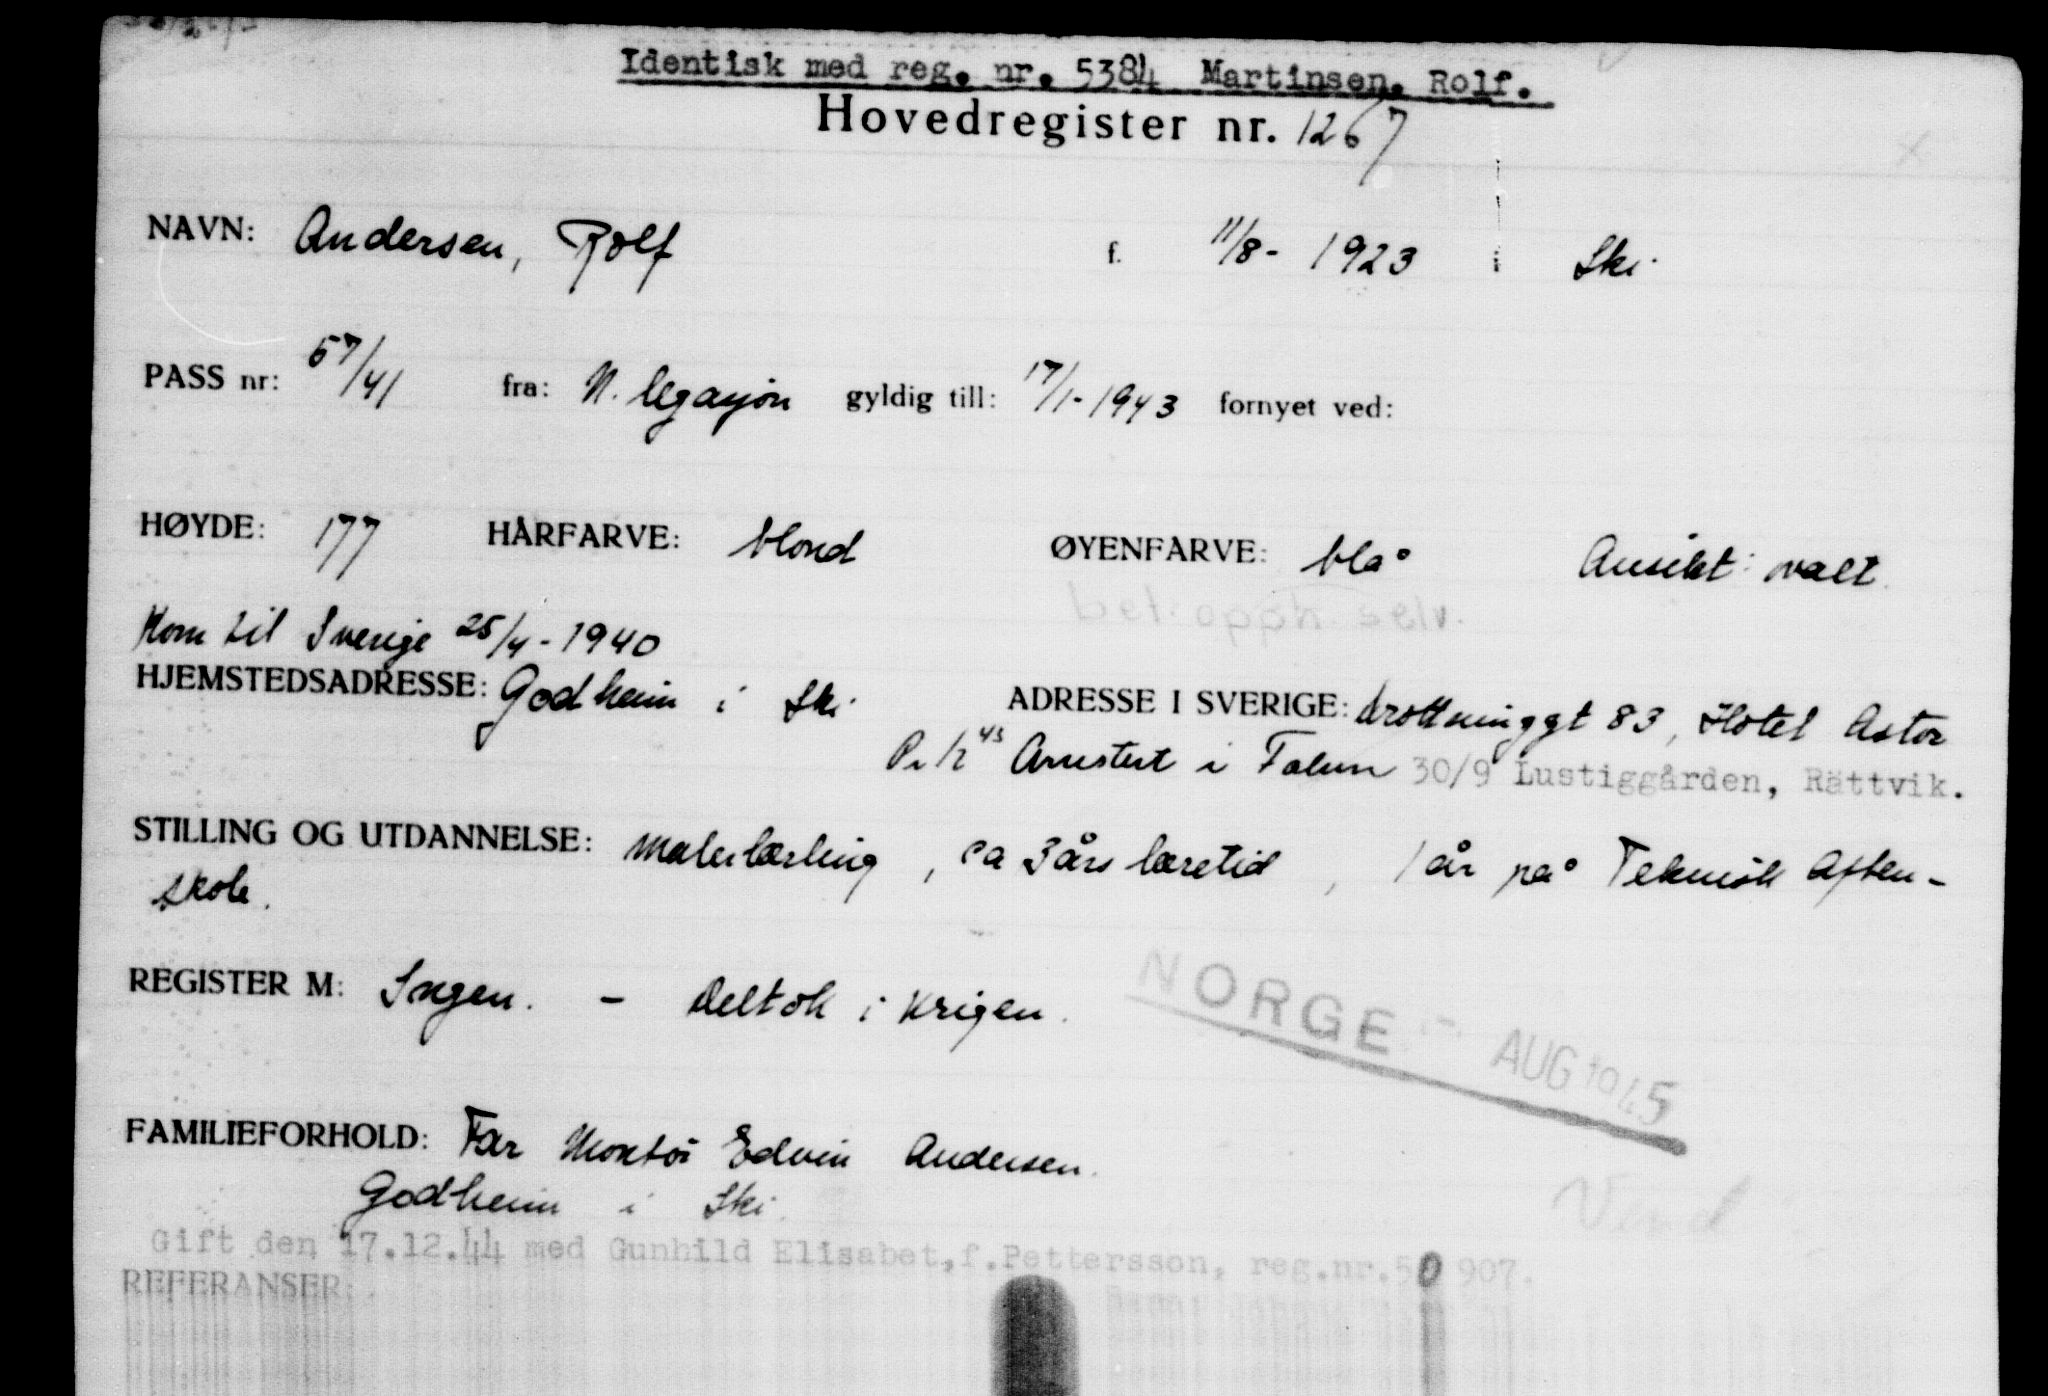 Identisk med reg. nr. 5384 Martinsen, Rolf.
Hovedregister nr. 1267
NAVN: Andersen, Rolf f. 11/8- 1923 i Ski.
PASS nr: 57/41 fra: N. legasjon gyldig till: 17/1-1943 fornyet ved:
HØYDE: 177 HÅRFARVE: blond ØYENFARVE: blå Ansikt: ovalt.
bet. opph. selv.
Kom til Sverige 25/4-1940
HJEMSTEDSADRESSE: Godheim i Ski. ADRESSE I SVERIGE: Drottninggt 83, Hotel Astor
Pr 1/2 43 Arrestert i Falun 30/9 Lustiggården, Rättvik.
STILLING OG UTDANNELSE: Malerlærling, ca 3 års læretid, 1 år på Teknisk Aften-
skole.
REGISTER M: Ingen. - Deltok i krigen.
NORGE AUG 1945
FAMILIEFORHOLD: Far Montør Edvin Andersen.
Godheim i Ski.
Vend
Gift den 17.12.44 med Gunhild Elisabet, f. Pettersson, reg.nr.50 907.
REFERANSER: